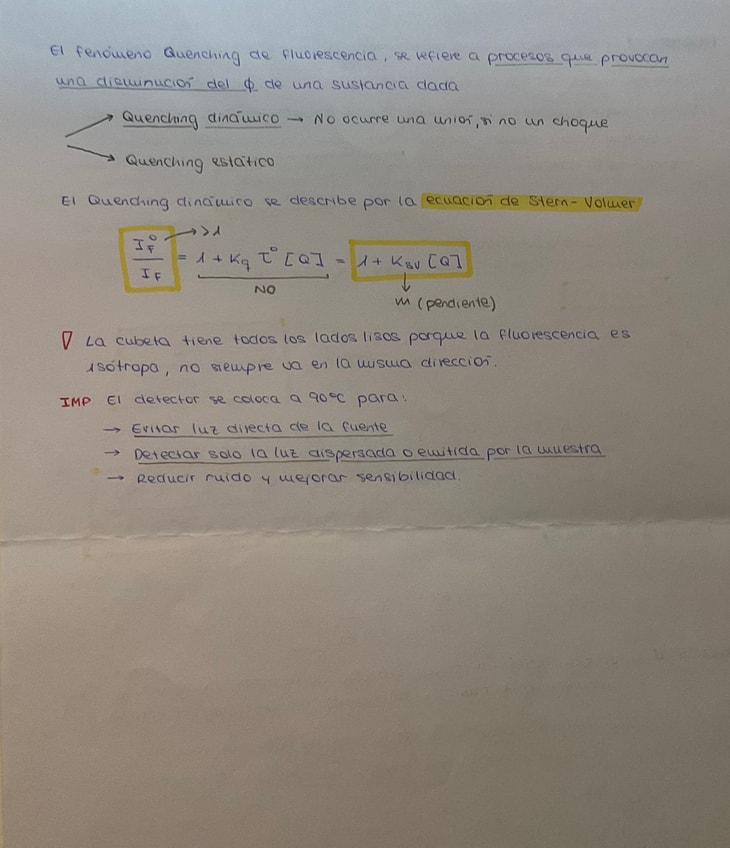 El fenómeno Quenching de fluorescencia, se refiere a procesos que provocan
una disminución del ϕ de una sustancia dada
→ Quenching dinámico → No ocurre una unión, si no un choque
→ Quenching estático
El Quenching dinámico se describe por la ecuación de Stern-Volmer
I°F / IF → >1 = 1 + Kq τ° [Q] = 1 + KSV [Q]
NO
m (pendiente)
La cubeta tiene todos los lados lisos porque la fluorescencia es
isótropa, no siempre va en la misma dirección.
IMP El detector se coloca a 90°C para:
→ Evitar luz directa de la fuente
→ Detectar solo la luz dispersada o emitida por la muestra
→ Reducir ruido y mejorar sensibilidad.